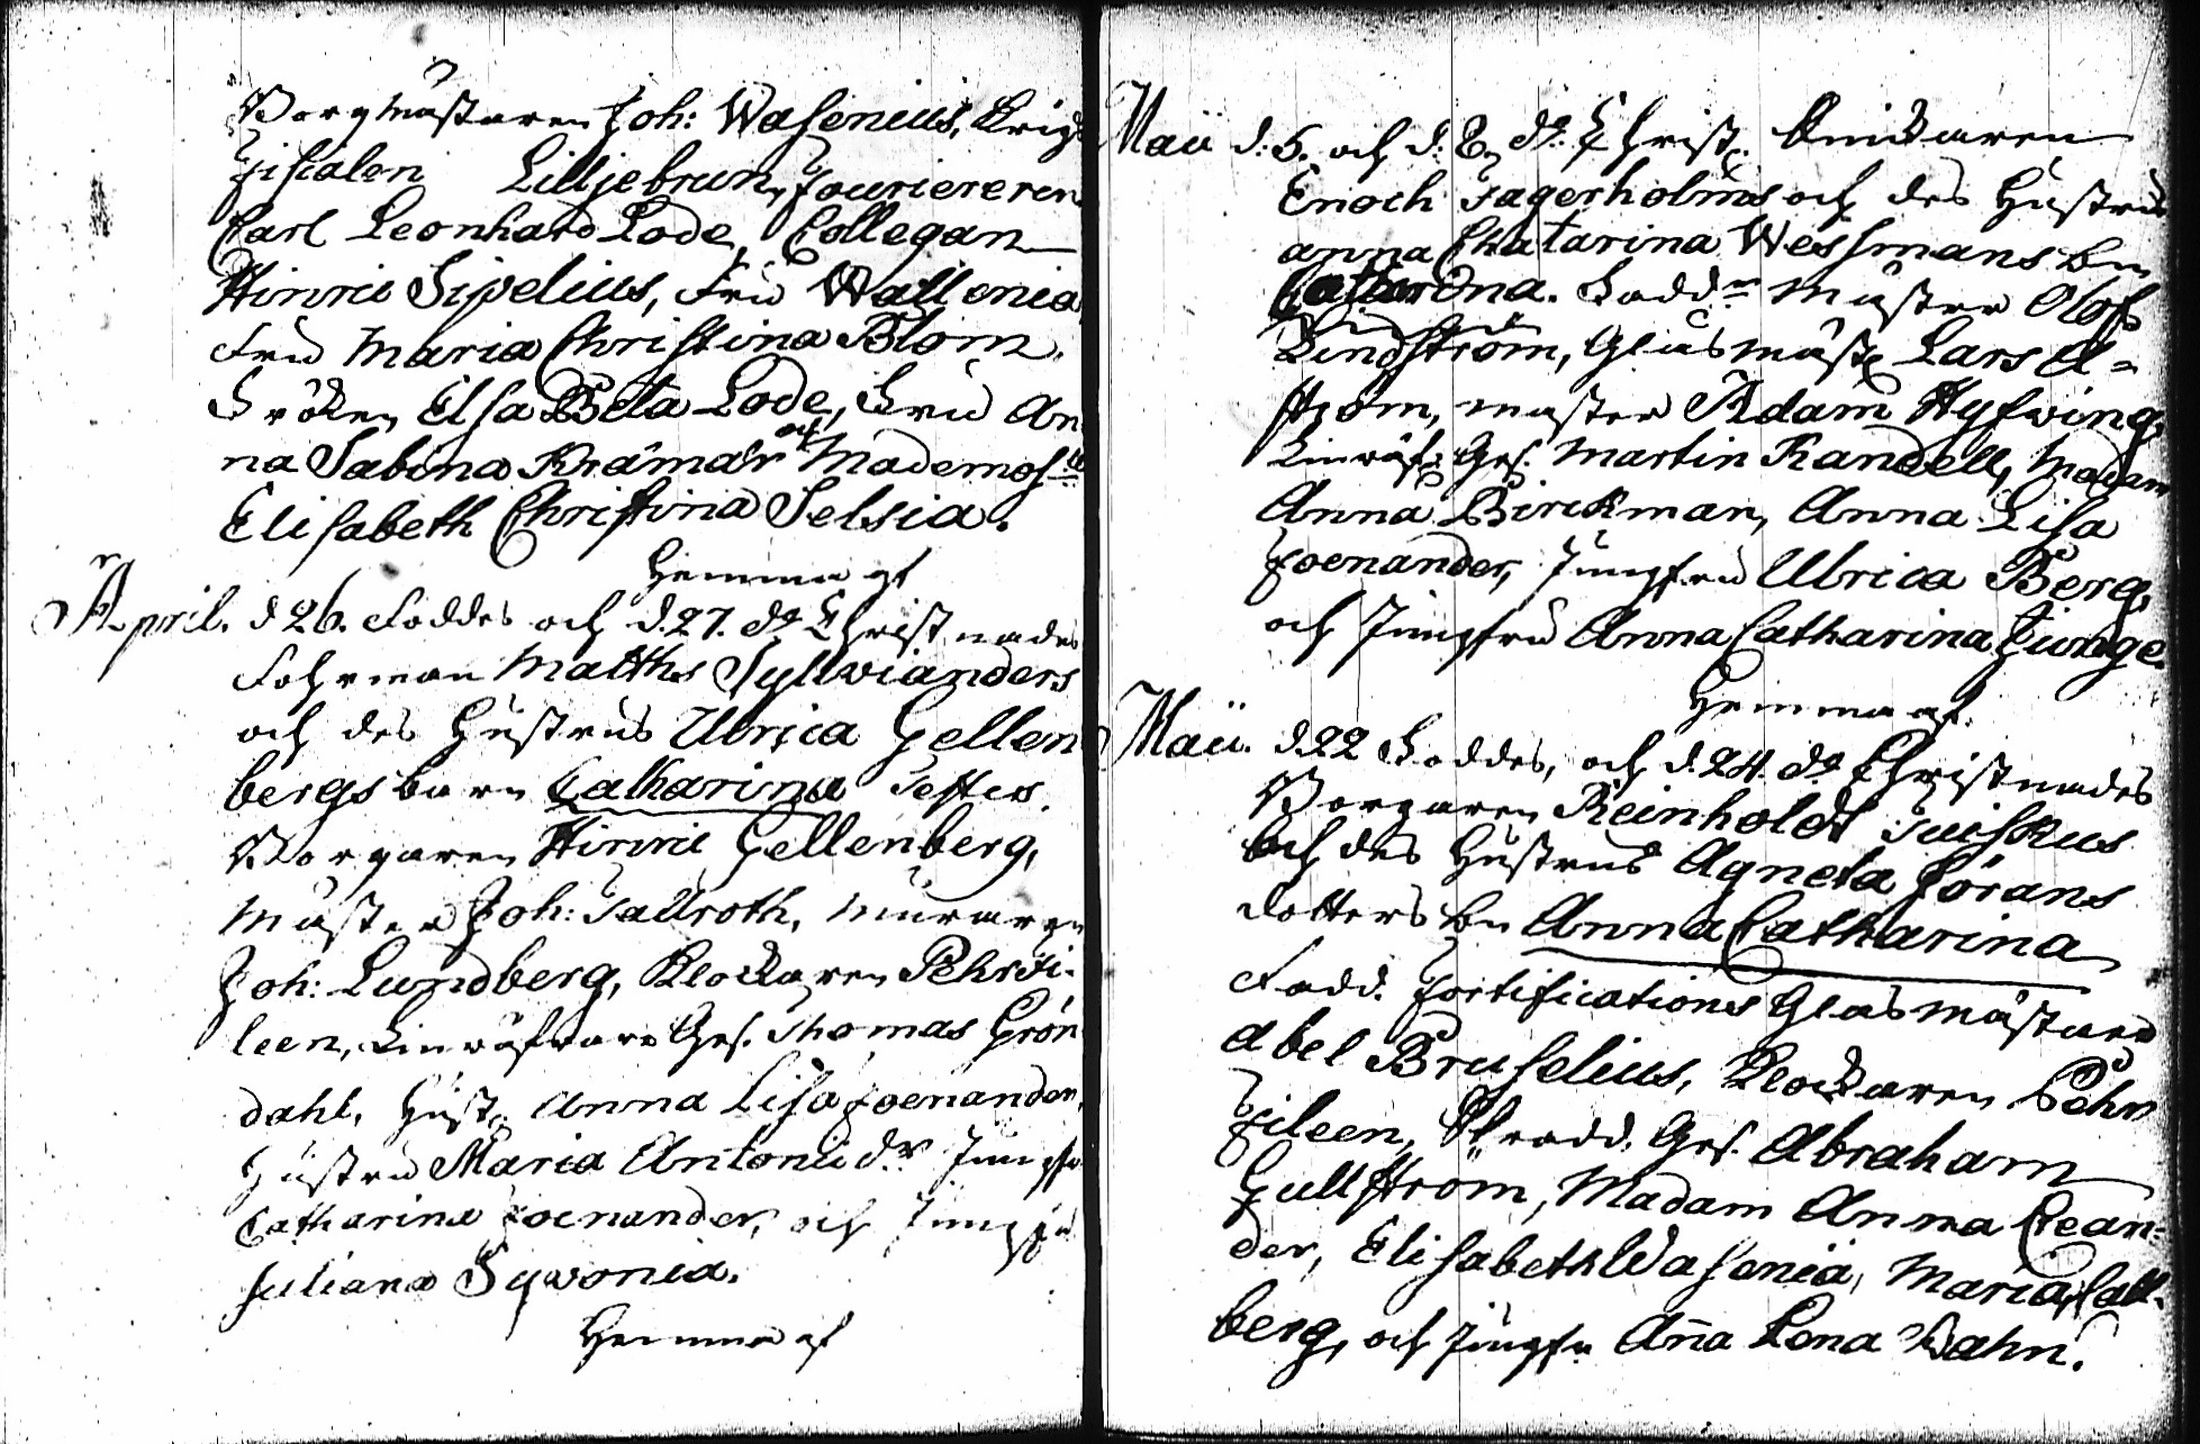 Borgmästaren Joh: Wasenius, Krigs
Fiscalen Lilljebrun, Fourieraren
Carl Leonhard Lode, Collegan
Hinric Sipelius, Fru Wallenia
Fru Maria Christina Blom,
Fröken Elsa Beta Lode, Fru An
na Sabina Krämar och Mademosll
Elisabeth Christina Selsia.
Hemma af
April. d 26. Föddes och d. 27. do Christnades
Fohrman Matths Sylwianders
och des Hustrus Ulrica Gellen
bergs barn Catharina Testes.
Borgaren Hinric Gellenberg,
Mäster Joh: Tallroth, Muraren
Joh: Lundberg, Klockaren Pehr Fi-
leen, Linwäfvare Ges. Thomas Grön
dahl, Hust. Anna Lisa Foenander,
Hustru Maria Antonii dr Jungfr
Catharina Foenander, och Jungfru
Juliana Sywonia.
Hemma af
Maii d. 5. och d. 8. do. Christ.
Enoch Fagerholms och des Hustrus
Anna Chatarina Wessmans bn
Fadd. Mäster Olof
Lindström, Glasmäst. Lars A-
ström, mäster Adam Hyfwing,
Linwäf. Ges. Martin Randell, Madam
Anna Birckman, Anna Lisa
Foenander, Jungfru Ulrica Berg,
och Jungfru Anna Catharina Junge.
Hemma af.
Maii. d. 22 Föddes, och d. 24. do Christnades
Borgaren Reinholdt
och des Hustrus Agneta Jörans
dotters bn Anna Catharina
Fadd. Fortifications Glasmästare
Abel Bruselius, Klockaren Pehr
Fileen, Skradd. Ges. Abraham
Gullström, Madam Anna Crean-
der, Elisabeth Wasenia, Maria Call-
berg, och Jungfr Anna Lena Wahn.